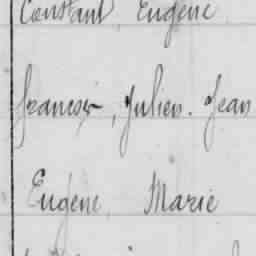 Constant Eugène
François, Julien. Jean
Eugène, Marie